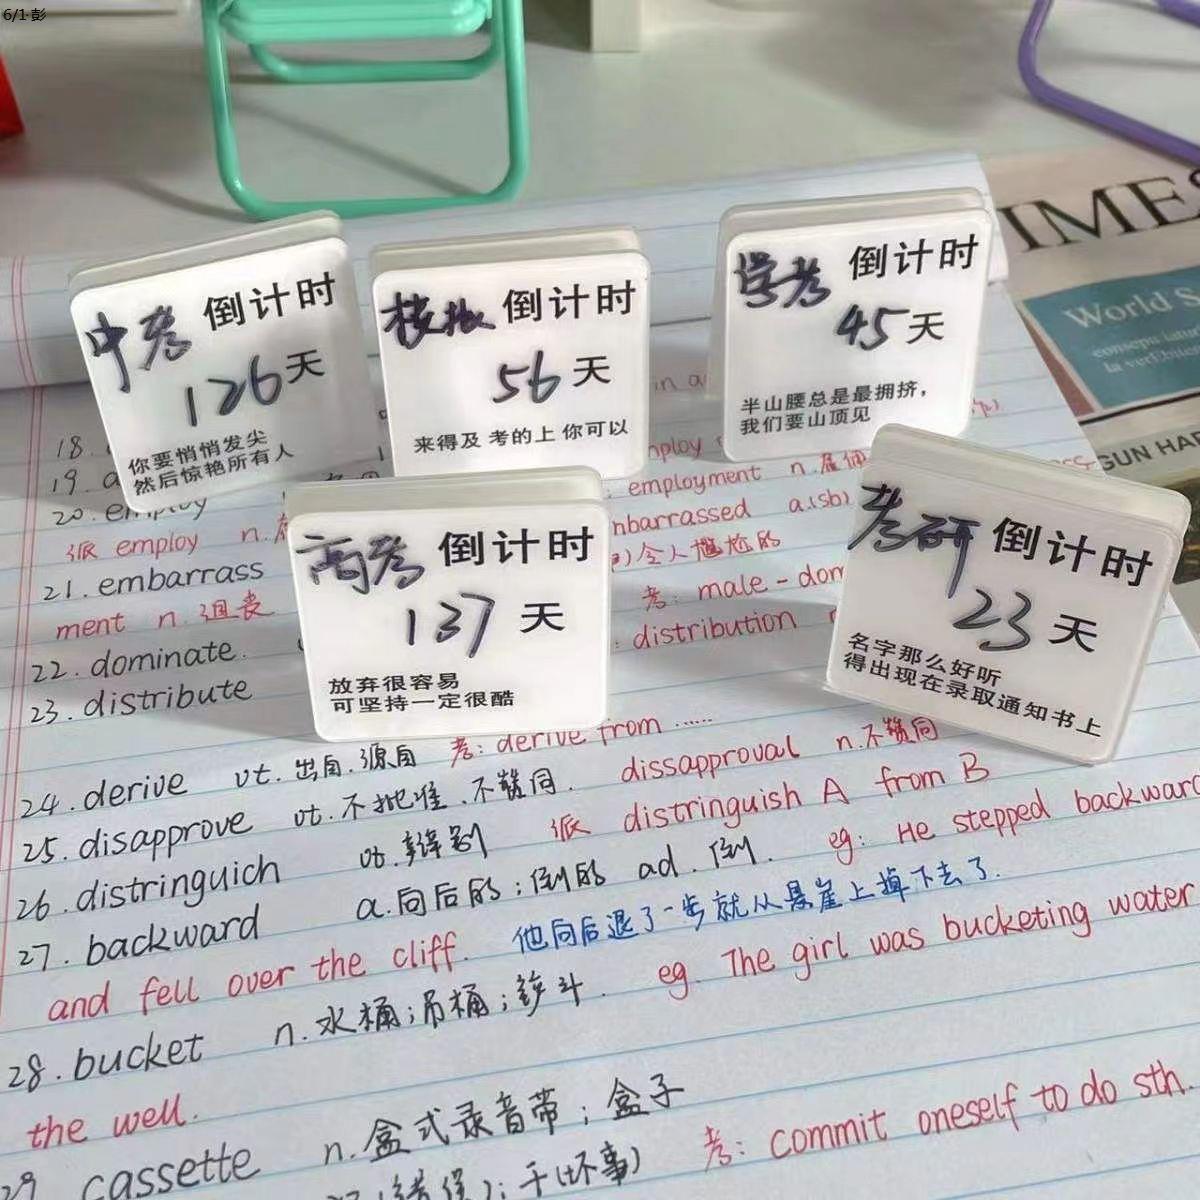 6/1·彭
IMES
World S
consepu iatur
la verf
GUN HAR
中考 倒计时
126天
你要悄悄发尖
然后惊艳所有人
模拟 倒计时
56天
来得及 考的上 你可以
学考 倒计时
45天
半山腰总是最拥挤，
我们要山顶见
高考 倒计时
137 天
放弃很容易
可坚持一定很酷
考研 倒计时
23天
名字那么好听
得出现在录取通知书上
18.
19. a
20. employ
派 employ n. employment n. 雇佣
21. embarrass mbarrassed a.(sb)
ment n. 沮丧 )令人尴尬的
22. dominate. 考: male-dom
23. distribute : distribution
24. derive vt. 出自.源自 考: derive from ……
25. disapprove vt. 不批准.不赞同. dissapproval n.不赞同
26. distringuich vt. 辩别 派 distringuish A from B
27. backward a.向后的;倒的 ad.倒. eg: He stepped backward
and fell over the cliff. 他向后退了一步就从悬崖上掉下去了.
28. bucket n.水桶;吊桶;铲斗. eg. The girl was bucketing water
the well.
29 cassette n.盒式录音带; 盒子
;干(坏事) 考: commit oneself to do sth.